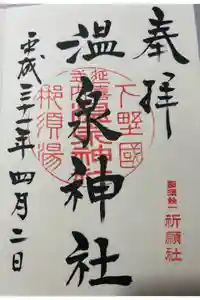 奉拝
下野國
延喜式内
温泉神社
那須湯
平成三十一年四月二日
祈願社